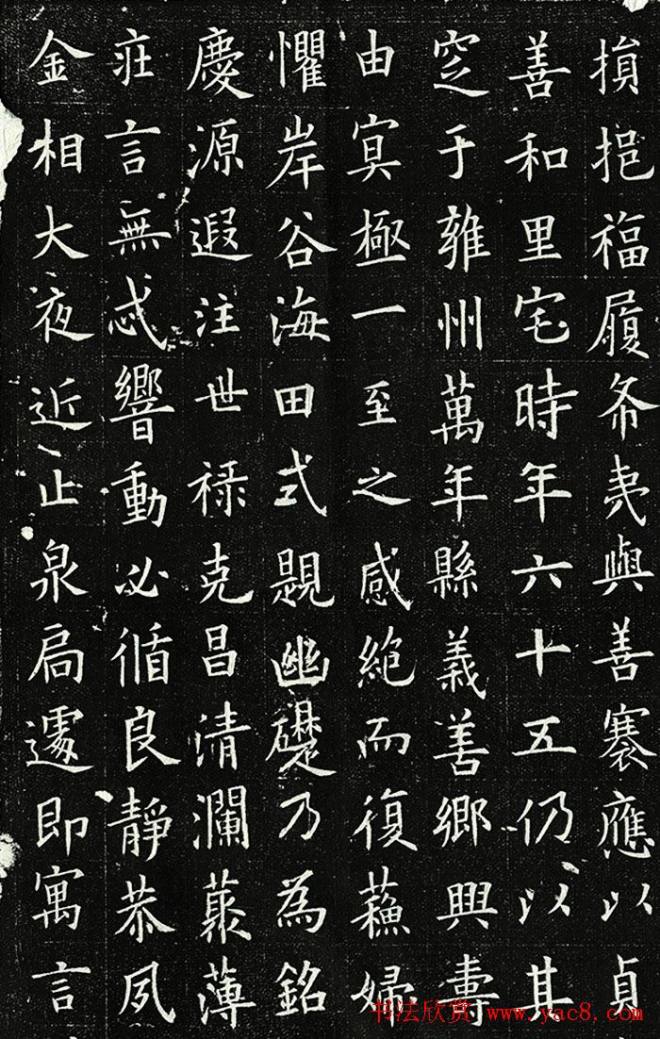 損挹福履希夷與善褰應以貞
善和里宅時年六十五仍以其
窆于雍州萬年縣義善鄉興壽
由冥極一至之感絕而復蘇婦
懼岸谷海田式題幽礎乃為銘
慶源遐注世祿克昌清瀾藂薄
莊言無忒響動必循良靜恭夙
金相大夜近止泉扃遽即寓言
书法欣赏 www.yac8.com